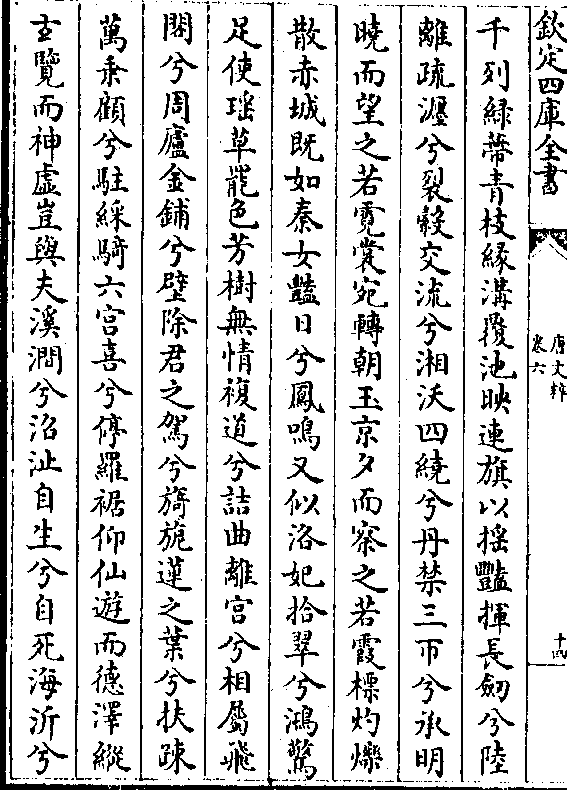 欽定四庫全書
唐文粹
卷六
十四
千列緑蔕青枝縁溝覆池映連旗以搖豔揮長劒兮陸
離疏瀍兮裂穀交流兮湘沃四繞兮丹禁三帀兮承明
曉而望之若霓裳宛轉朝玉京夕而察之若霞標灼爍
散赤城既如秦女豔日兮鳳鳴又似洛妃拾翠兮鴻驚
足使瑶草罷色芳樹無情複道兮詰曲離宫兮相屬飛
閣兮周廬金鋪兮璧除君之駕兮旖旎蓮之葉兮扶踈
萬乗顧兮駐綵騎六宫喜兮停羅裾仰仙遊而德澤縱
玄覽而神虚豈與夫溪澗兮沼沚自生兮自死海沂兮